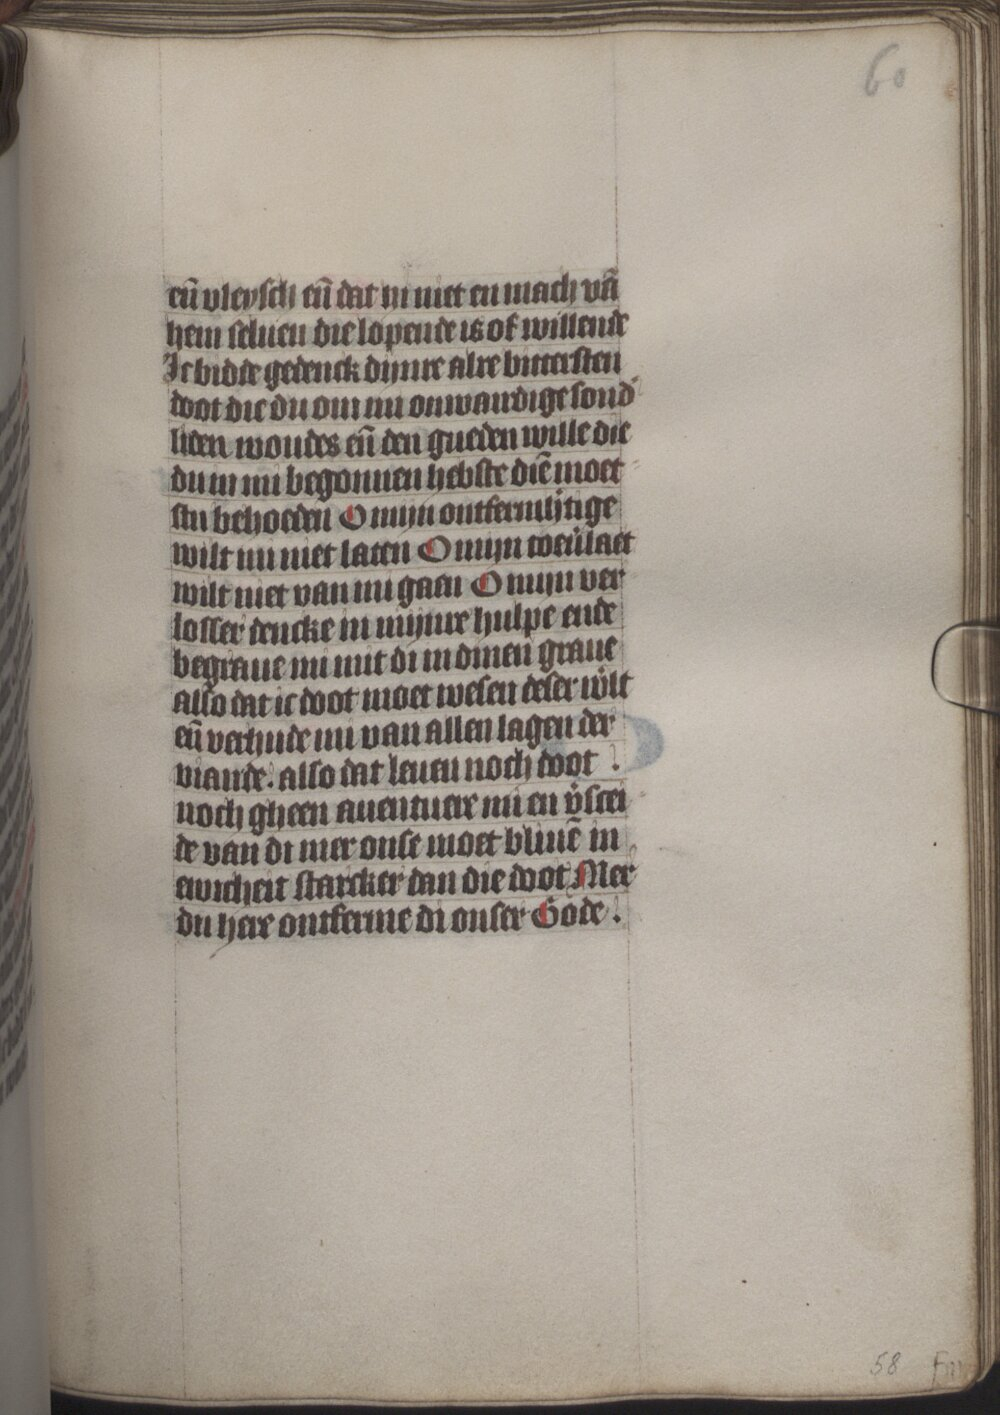 60
eñ vleysch eñ dat in niet en mach vā
hem seluen die lopende is of willende
Ic bidde gedenck dijnre alre bittersten
doot die du om mi onwaudige sond
liden woudes eñ den gueden wille die
du in mi begonnen hebste diē moet
stu behoeden O mijn ontfermhtige
wilt mi niet laten O mijn toeůlaet
wilt niet van mi gaen O mijn ver
losser dencke in mijnre hulpe ende
begraue mi mit di in dinen graue
also dat ic doot moet wesen deser wůlt
eñ verhude mi van allen lagen der
viande. also dat leuen noch doot
noch gheen auentuere mi en ÿscei
de van di mer onse moet bliuē in
ewicheit starcker dan die doot Mer
du here ontferme di onser Gode.
58